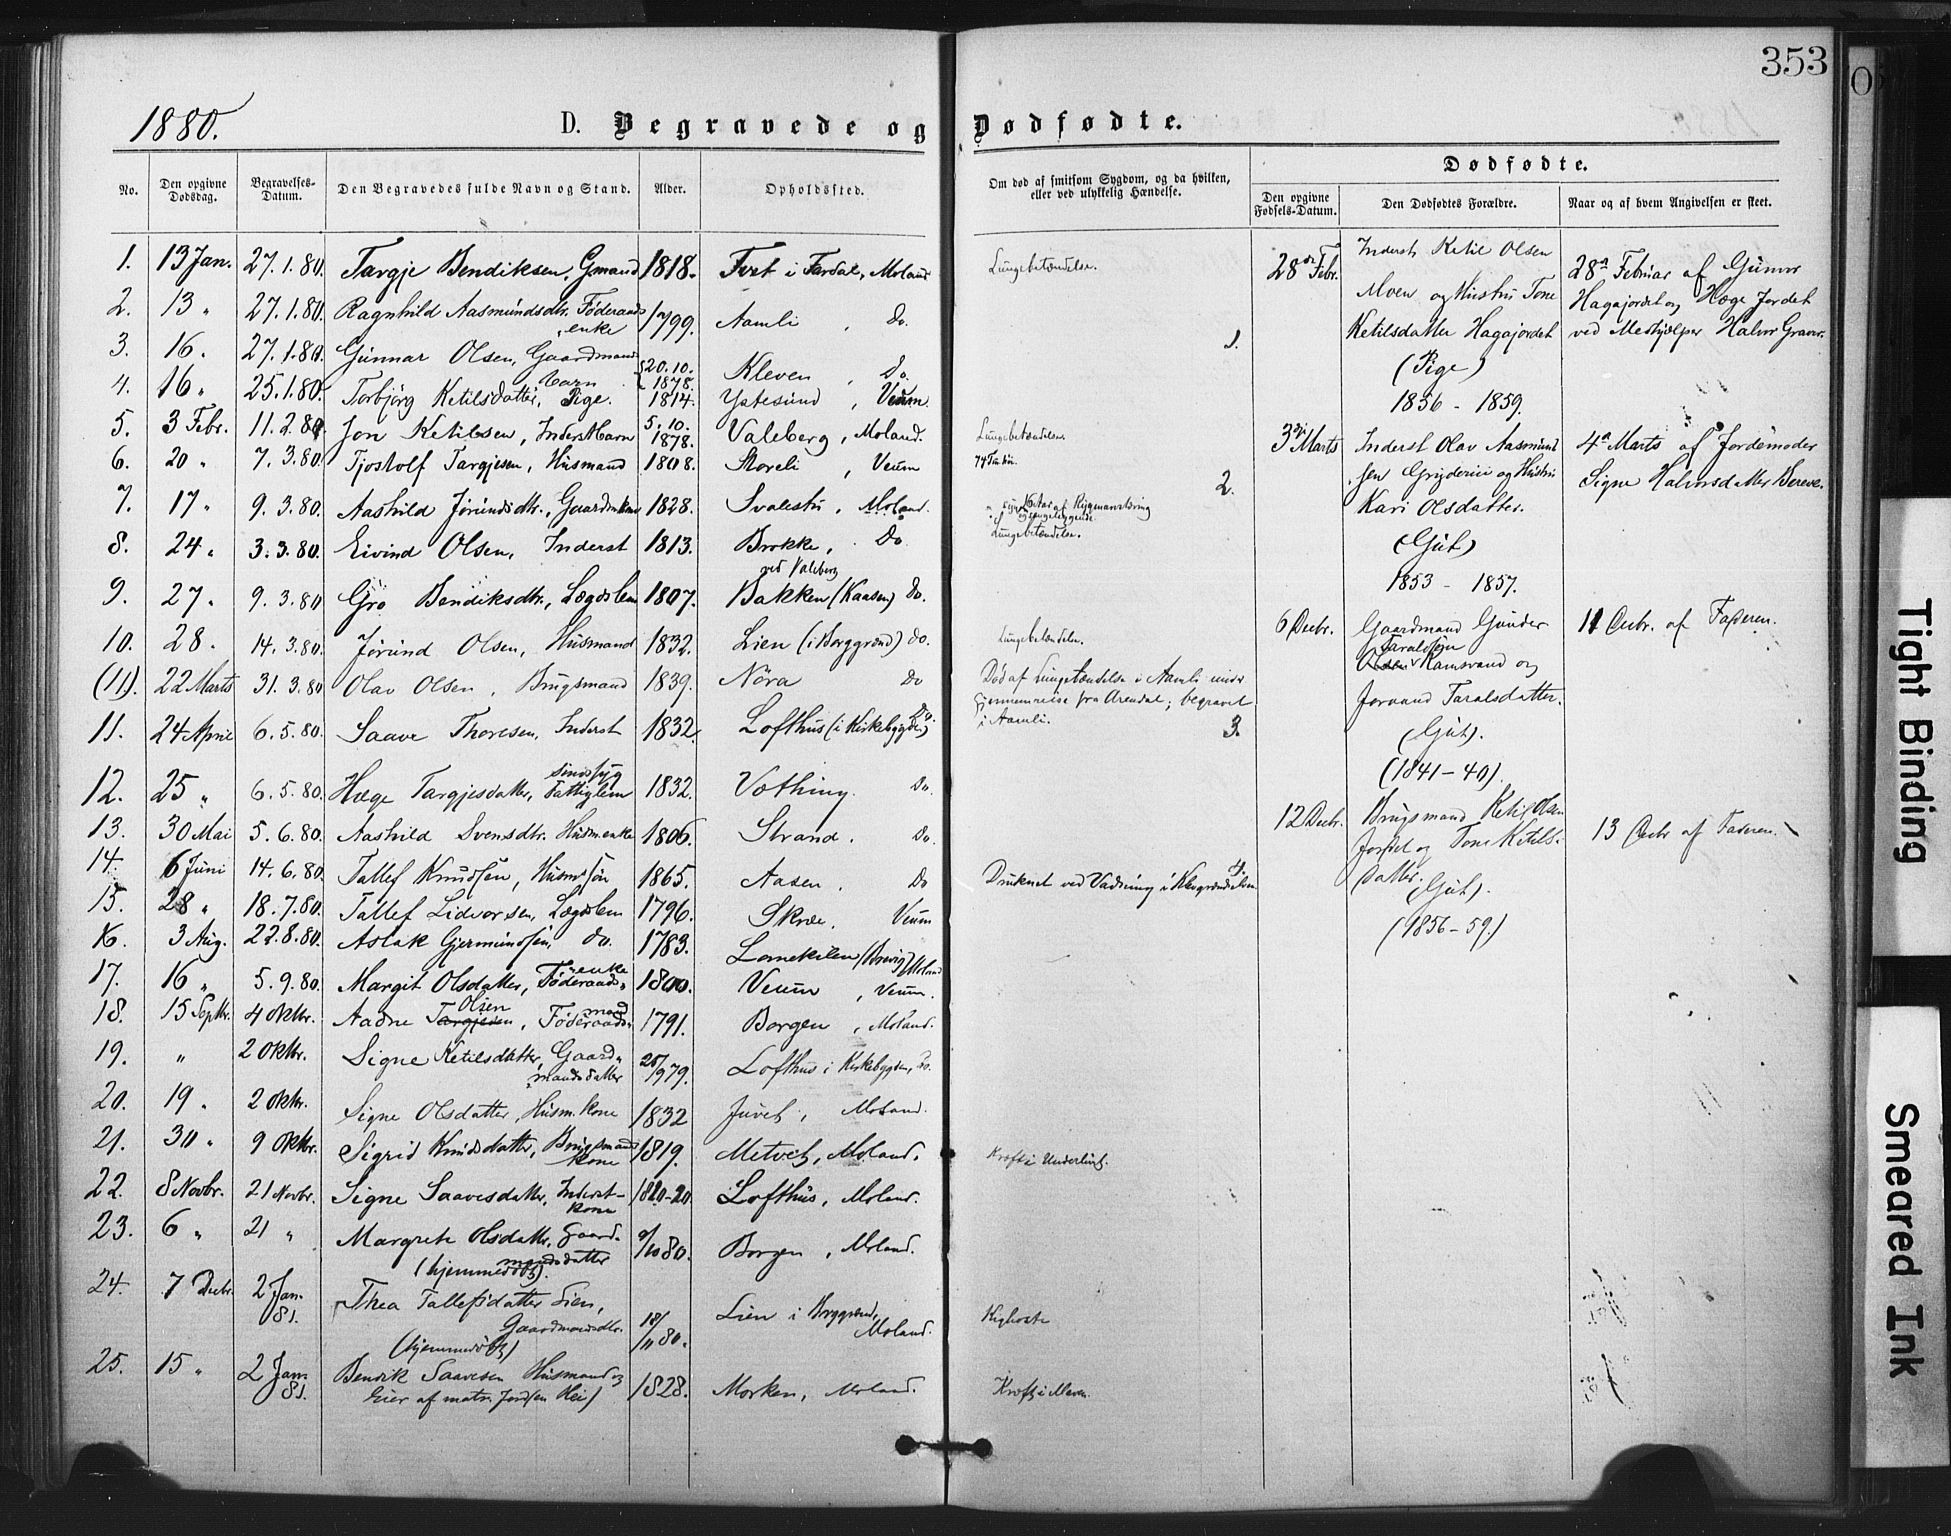 353
1880.
D. Begravede og Dødfødte.
No.
Den opgivne Dødsdag.
Begravelses-Datum.
Den Begravedes fulde Navn og Stand.
Alder.
Opholdssted.
Om død af smitsom Sygdom, og da hvilken, eller ved ulykkelig Hændelse.
Dødfødte.
Den opgivne Fødsels-Datum.
Den Dødfødtes Forældre.
Naar og af hvem Angivelsen er skeet.
1. 13 Jan. 27.1.80. Targje Bendiksen, Gmand 1818. i Fardal, Moland Lungebetændelse.
2. 13 " 27.1.80. Ragnhild Aasmundsdtr. Føderaads 1799. Aamli, Do.
enke
3. 16. 27.1.80. Gunnar Olsen, Gaardmands 20.10. Kleven, Do.
barn 1878.
4. 16 " 25.1.80. Torbjørg Ketilsdatter, Pige. 1814. Ystesund, Veum.
5. 3 Febr. 11.2.80. Jon Ketilssen, Inderst Barn 5.10. 1878. Valeberg, Moland. Lungebetændelse.
6. 20 " 7.3.80. Tjostolf Targjesen, Husmand 1808. Storeli, Veum
7. 17 " 9.3.80. Aashild Jørundsdtr., 1828. Svalestu, Moland.
8. 24 " 3.3.80. Eivind Olsen, Inderst 1813. Brokke, Do. Lungebetændelse.
ved Valeberg
9. 27 " 9.3.80 Gro Bendiksdtr., Lægdslem 1807. Bakken (Kaasen) Do.
10. 28. 14.3.80. Jørund Olsen, Husmand 1832. Lien (i Berggrend) do. Lungebetændelse.
(11). 22 Marts 31.3.80 Olav Olsen, Brugsmand 1839. Nöra do Død af Lungebetændelse i Aamli under
Gjennemreise fra Arendal; begravet
i Aamli.
11. 24 April 6.5.80. Saave Thoresen, Inderst 1832. Lofthus (i Kirkebygden) Do.
sindssyg
12. 25 " 6.5.80. Hæge Targjesdatter, Fattiglem 1832. Vothing. Do.
13. 30 Mai 5.6.80. Aashild Svensdtr. Husmenke 1806. Strand. Do.
14. 6 Juni 14.6.80. Tallef Knudsen, Husmsøn 1865. Aasen. Do Druknet ved Vadning i
15. 28 " 18.7.80. Tallef Lidvorsen, Lægdslem 1796. Skræe. Veum
16. 3 Aug. 22.8.80. Aslak Gjermundsen, do. 1783. (Brevig) Moland
17. 16 " 5.9.80. Margit Olsdatter, Føderaads- enke 1800. Veum, Veum.
18. 15 Septbr. 4 Oktbr. Aadne Targjesen Olsen, Føderaads- mand 1791. Borgen, Moland.
19. " 2 Oktbr. Signe Ketilsdatter, Gaard- Lofthus i Kirkebygden, Do.
mandsdatter
20. 19 " 2 Oktbr. Signe Olsdatter, Husm. kone 1832 Juvet, Moland.
21. 30 " 9 Oktbr. Sigrid Knudsdatter, Brugsmands 1819. Metveit, Moland. Kræft i Underlivet.
kone
22. 8 Novbr. 21 Novbr. Signe Saavesdatter, Inderst- Lofthus, Moland.
kone
23. 6 " 21 " Margrete Olsdattr. Gaard- Borgen, Moland.
mandsdatter
(hjemmedøbt).
24. 7 Decbr. 2 Jan. 81. Thea Tallefsdatter Lien, 18/11 80. Lien i Berggrend, Kighoste
Gaardmandsdtr. Moland.
(hjemmedøbt)
25. 15 " 2 Jan. 81. Bendik Saavesen Husmand og 1828. Morken, Moland. Kræft i Maven.
Eier af matr.
1. 28de Febr. Inderst Ketil Olsen
Moen og Hustru Tone
Ketilsdatter Hagajordet
(Pige)
1856 - 1859.
28de Februar af Gunvor
Hagajordet og Hæge Jordet
ved Medhjælper Halvor
2. 3die Marts Inderst Olav Aasmund-
sen og Hustru
Kari Olsdatter.
(Gut)
1853 - 1857.
4de Marts af Jordemoder
Signe Halvorsdatter
3. 6 Decbr. Gaardmand Gunder
Taraldsen
Olsen Ramsvand og
Joraand Taralsdatter.
(Gut).
(1841-40).
11 Decbr. af Faderen.
4. 12 Decbr. Brugsmand Ketil Olsen
Jordet og Tone Ketils-
datter.
(Gut).
(1856-59.)
13 Decbr af Faderen.
Tight Binding
Smeared Ink